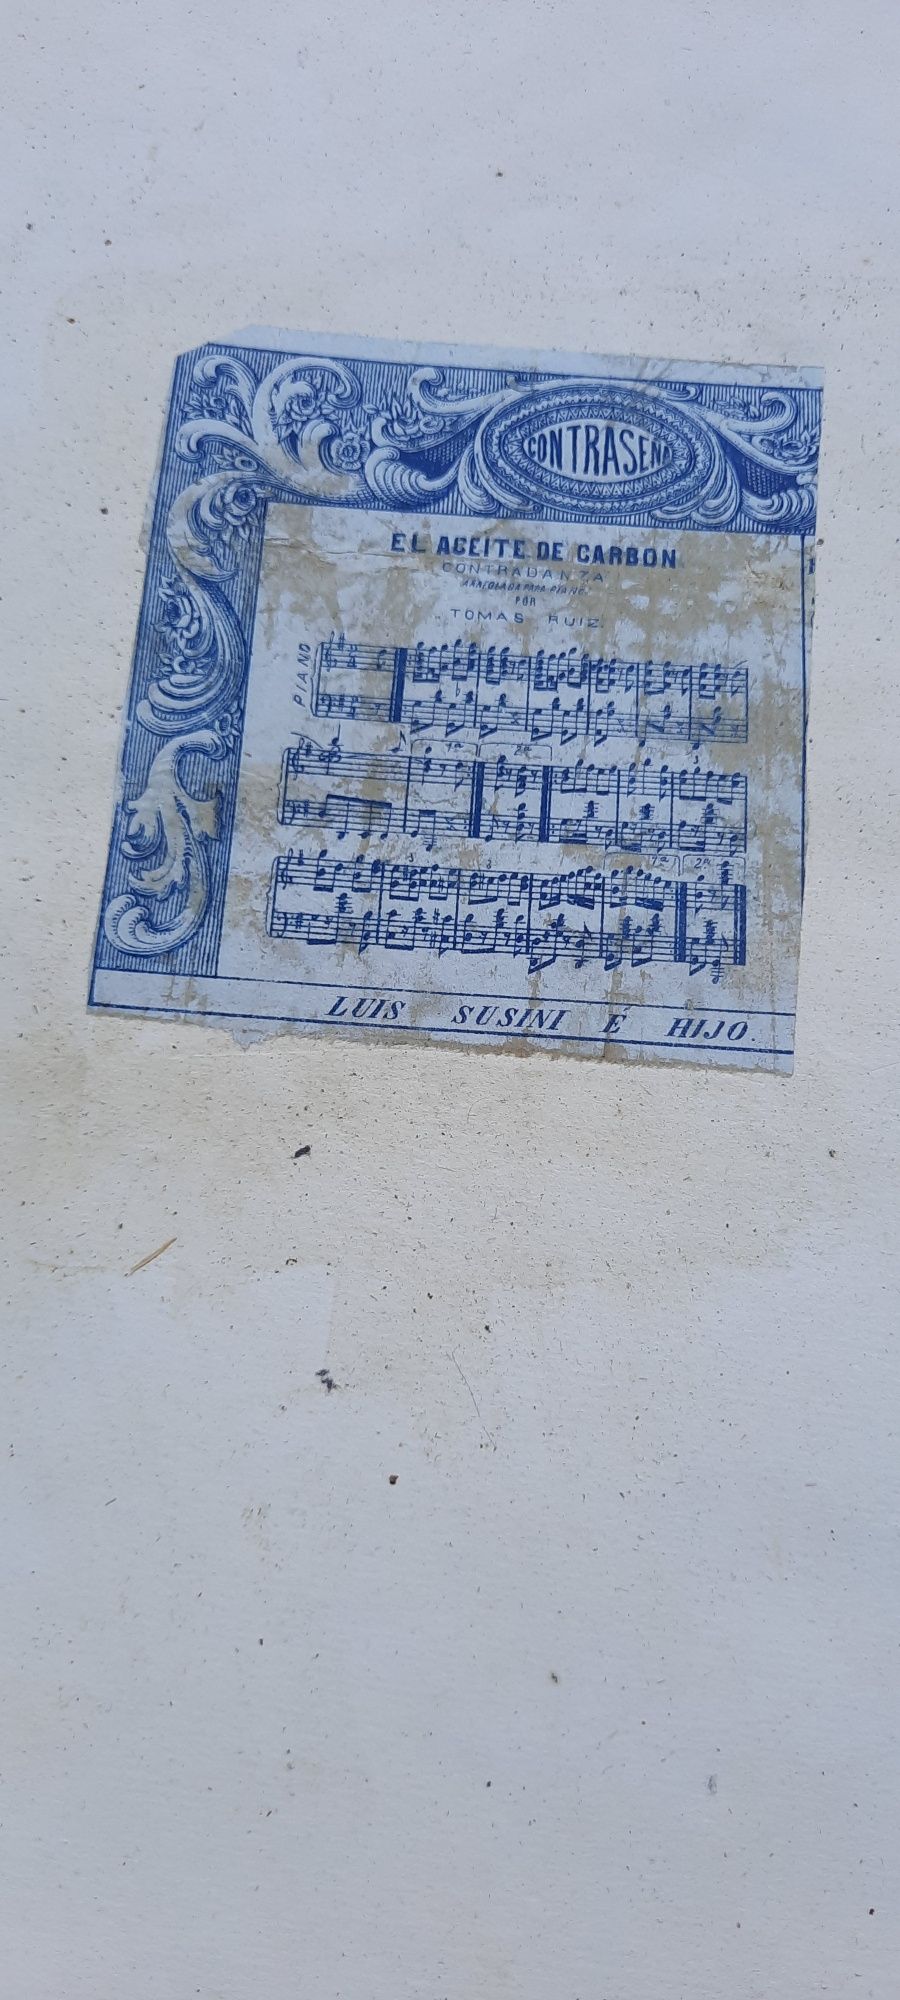 CONTRASEÑA
EL ACEITE DE CARBON
CONTRADANZA
ARREGLADA PARA PIANO
POR
TOMAS RUIZ.
PIANO
1ª 2ª
3
3 3 1ª 2ª
LUIS SUSINI É HIJO.